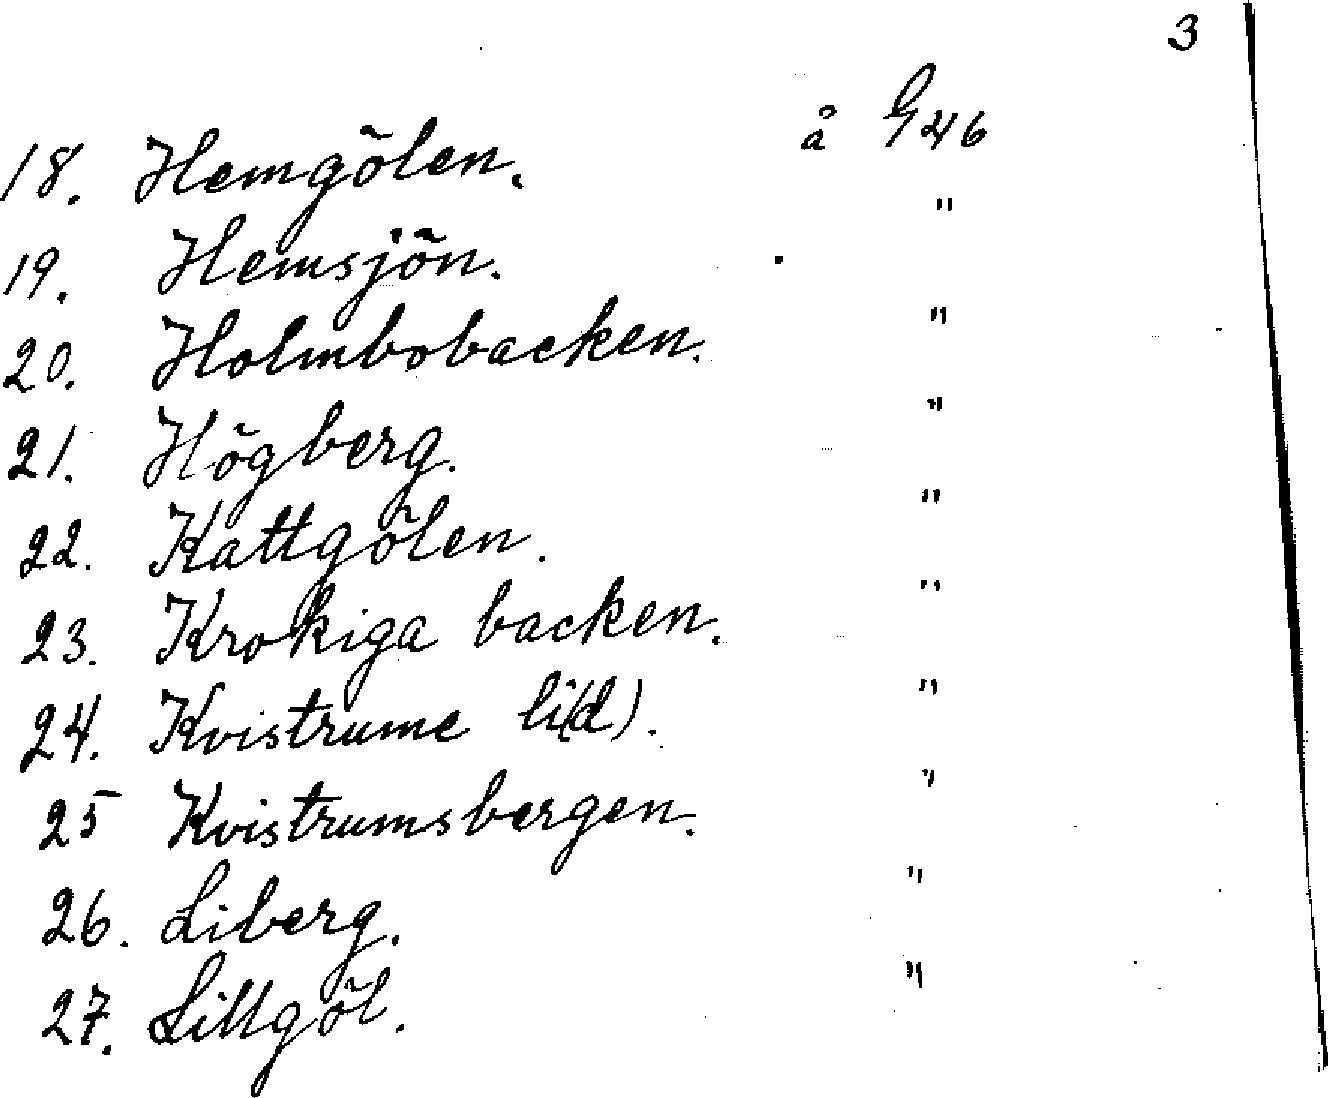 3
18. Hemgölen. å G 46
19. Hemsjön. "
20. Holmbobacken. "
21. Högberg. "
22. Kattgölen. "
23. Krokiga backen. "
24. Kvistrume li(d). "
25 Kvistrumsbergen. "
26. Liberg. "
27. Lillgöl. "